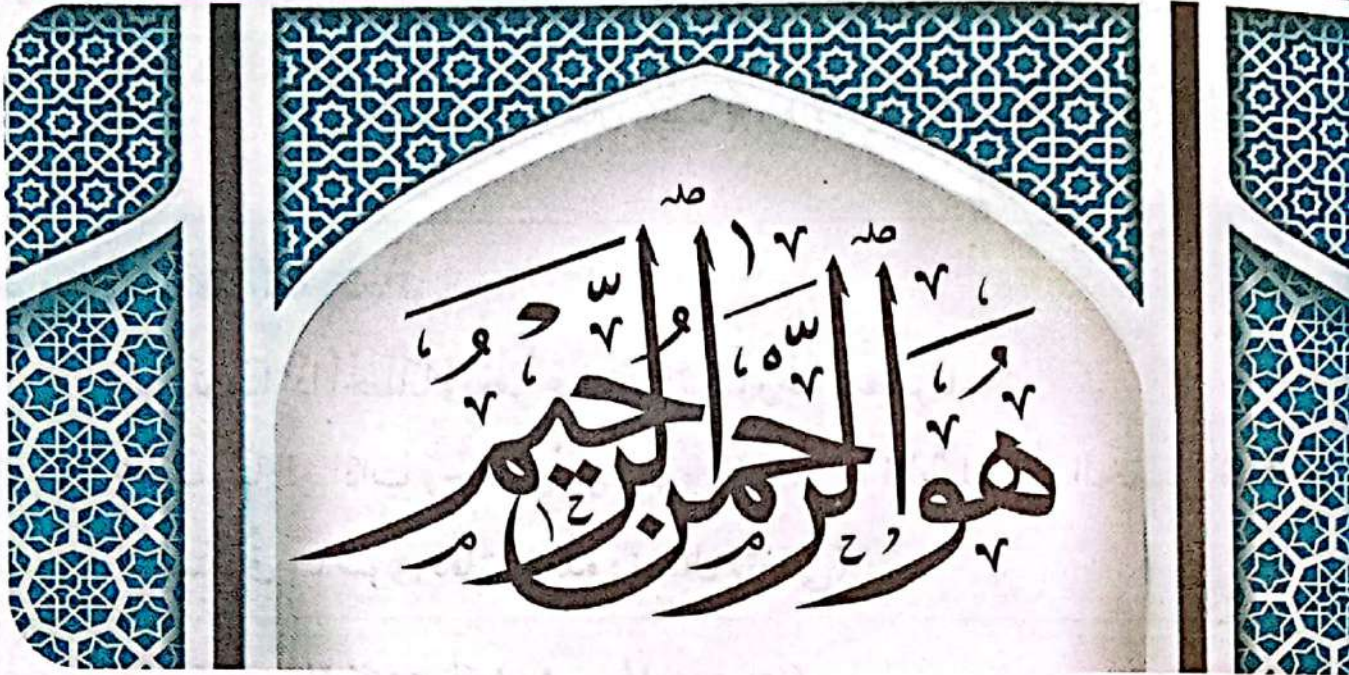 هُوَ الرَّحْمَٰنُ الرَّحِيمُ